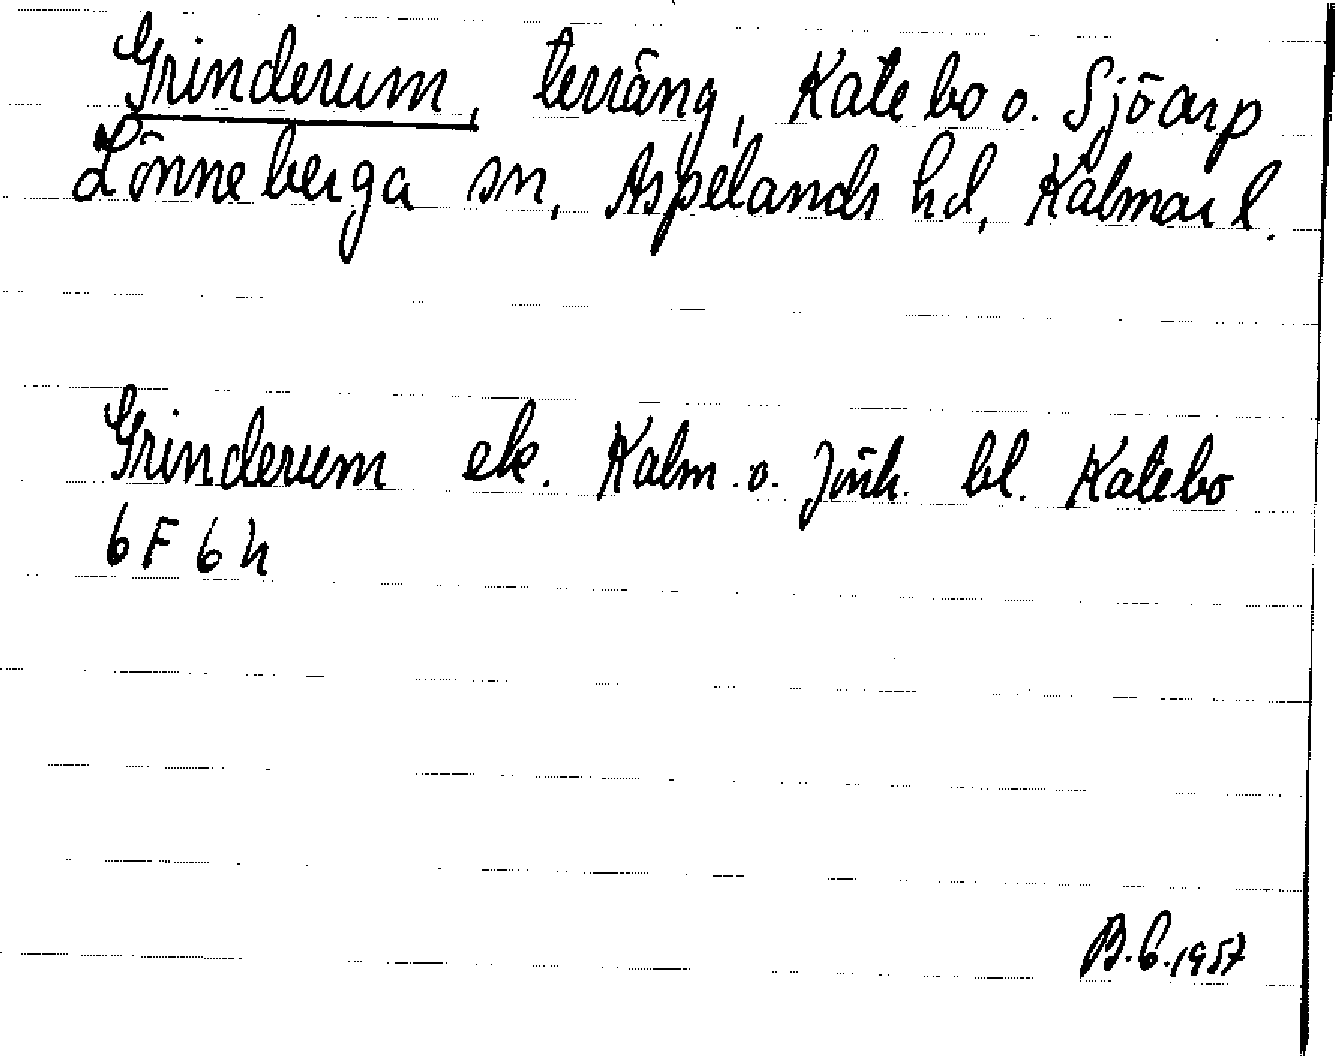 Grinderum, terräng, Katebo o. Sjöarp
Lönneberga sn, Aspelands hd, Kalmar l.
Grinderum ek. Kalm. o. Jönk. bl. Katebo
6F 6h
B.C. 1957